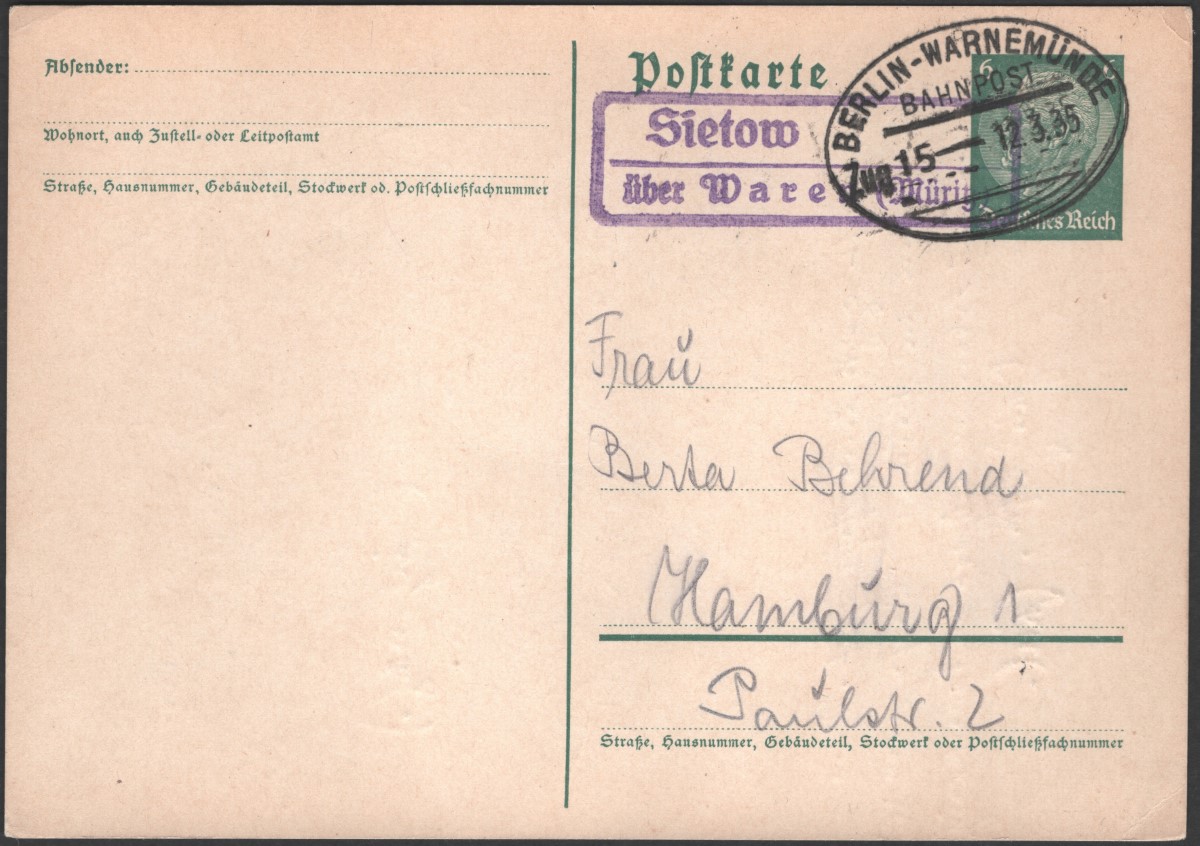 Absender:
Wohnort, auch Zustell- oder Leitpostamt
Straße, Hausnummer, Gebäudeteil, Stockwerk od. Postschließfachnummer
Postkarte
Sietow
über Ware (Müritz
BERLIN-WARNEMÜNDE
BAHNPOST
12.3.35
Zug 15
6
Deutsches Reich
Frau
Berta Behrend
Hamburg 1
Paulstr. 2
Straße, Hausnummer, Gebäudeteil, Stockwerk oder Postschließfachnummer